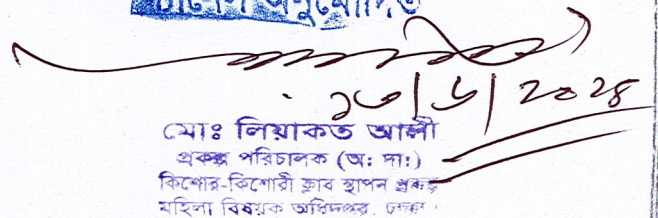 অনুমোদিত
১৩/৬/২০২৪
মোঃ লিয়াকত আলী
প্রকল্প পরিচালক (অঃ দাঃ)
কিশোর-কিশোরী ক্লাব স্থাপন প্রকল্প
মহিলা বিষয়ক অধিদপ্তর, ঢাকা।